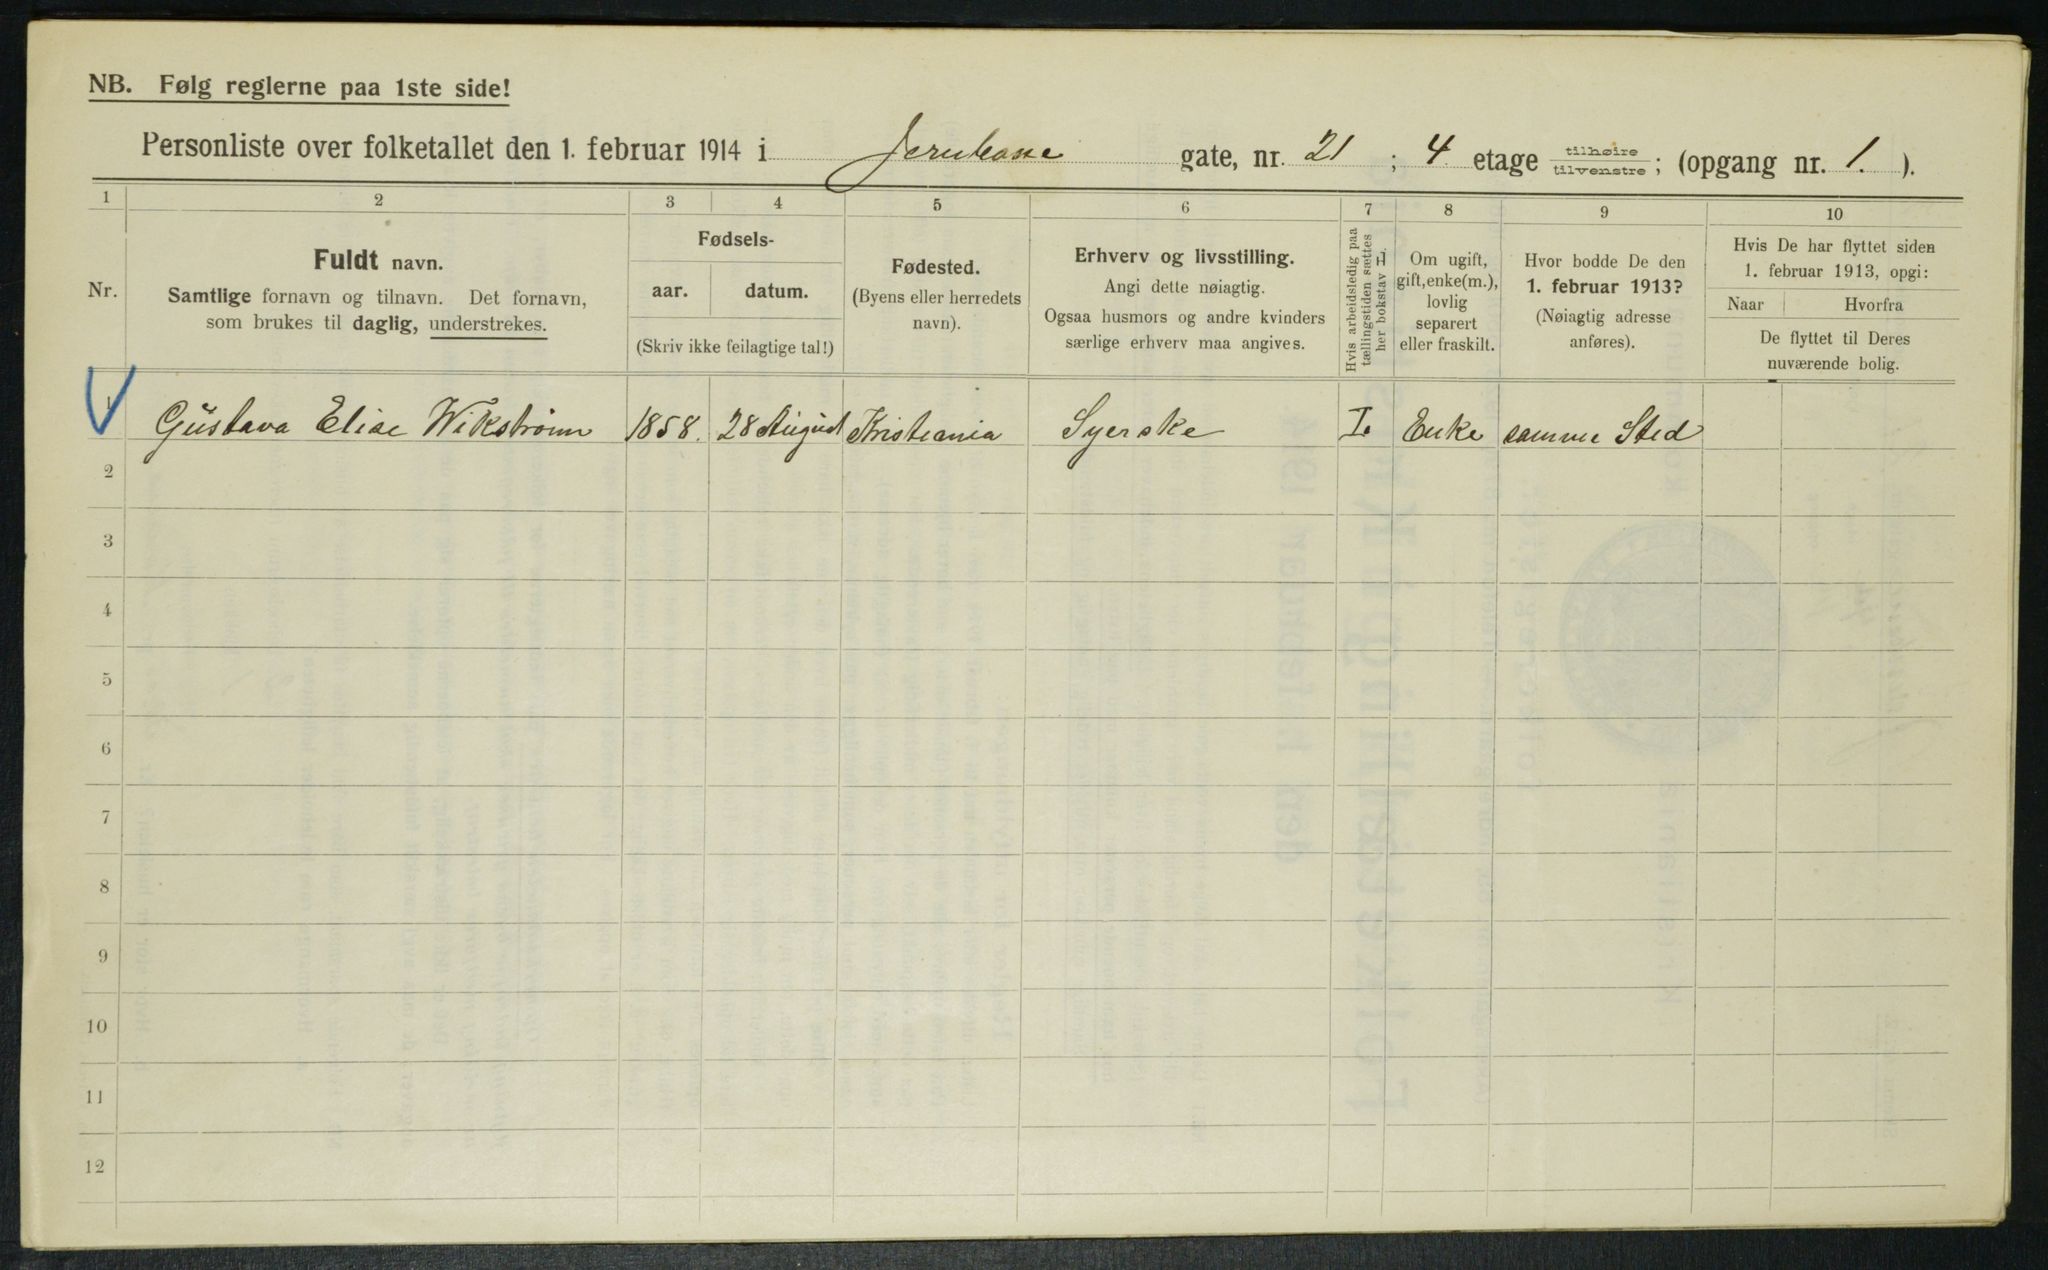 NB. Følg reglerne paa 1ste side!
Personliste over folketallet den 1. februar 1914 i gate, nr. 21 ; 4 etage tilhøire tilvenstre ; (opgang nr. 1. ).
1 2 3 4 5 6 7 8 9 10
Nr.
Fuldt navn.
Samtlige fornavn og tilnavn. Det fornavn,
som brukes til daglig, understrekes.
Fødsels-
aar. datum.
(Skriv ikke feilagtige tal!)
Fødested.
(Byens eller herredets
navn).
Erhverv og livsstilling.
Angi dette nøiagtig.
Ogsaa husmors og andre kvinders
særlige erhverv maa angives.
Hvis arbeidsledig paa
tællingstiden sættes
her bokstav L.
Om ugift,
gift, enke(m.),
lovlig
separert
eller fraskilt.
Hvor bodde De den
1. februar 1913?
(Nøiagtig adresse
anføres).
Hvis De har flyttet siden
1. februar 1913, opgi:
Naar Hvorfra
De flyttet til Deres
nuværende bolig.
1 Gustava Elise Wikstrøm 1858. 28 August Kristiania Syerske Enke samme Sted
2
3
4
5
6
7
8
9
10
11
12